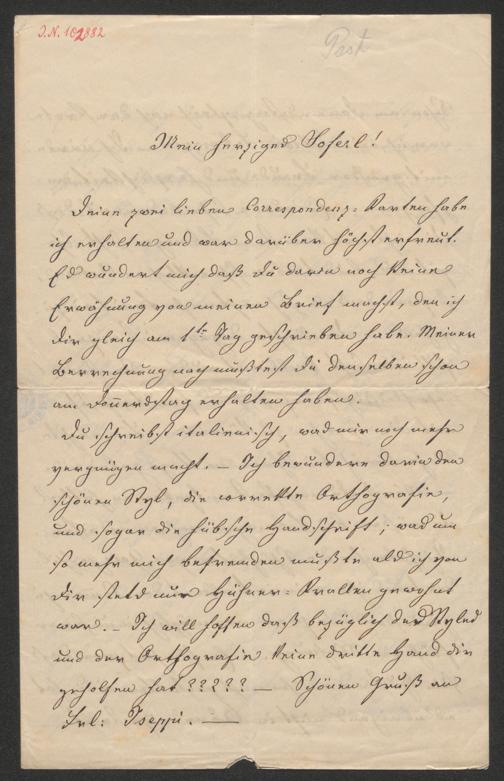 I.N. 102882
Post
Mein herziges Soferl!
Deine zwei lieben Correspondenz-Karten habe
ich erhalten und war darüber höchst erfreut.
Es wundert mich daß du darin noch keine
Erwähnung von meinen Brief machst, den ich
dir gleich am 1ten Tag geschrieben habe. Meiner
Berrechnung nach müßtest du denselben schon
am Donnerstag erhalten haben.
Du schreibst italienisch, was mir noch mehr
vergnügen macht. – Ich bewundere darin den
schönen Styl, die correkte Orthografie,
und sogar die hübsche Handschrift; was um
so mehr mich befremden mußte als ich von
dir stets nur Hühner-Krallen gewohnt
war. – Ich will hoffen daß bezüglich des Styles
und der Orthografie keine dritte Hand dir
geholfen hat ????? – Schönen Gruß an
Frl: Pseppi. —